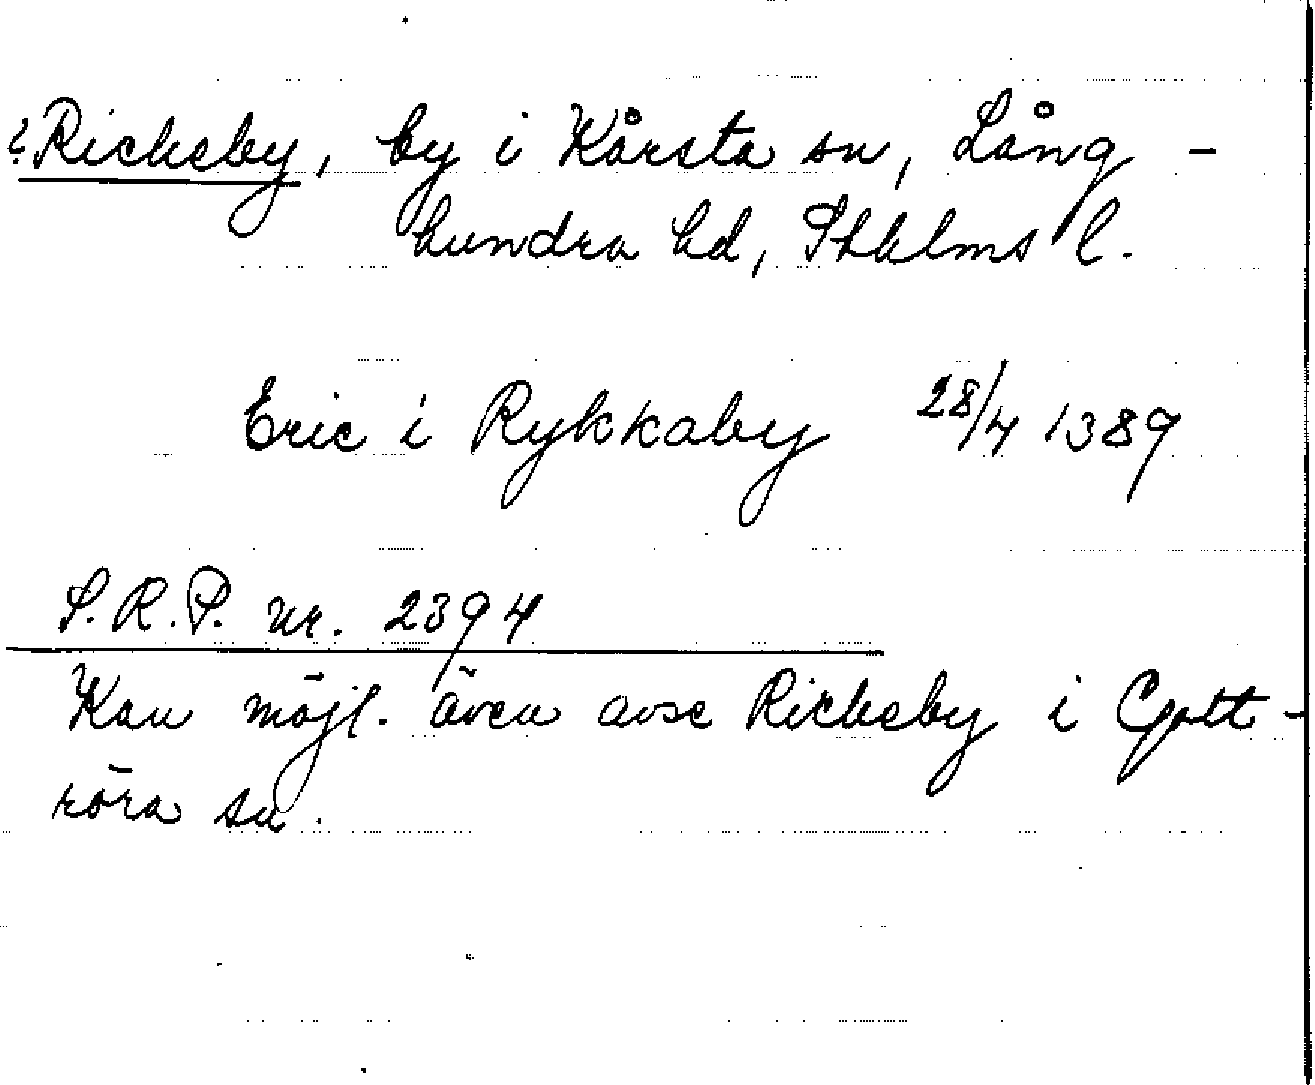 ?Rickeby, by i Kårsta sn, Lång-
hundra hd, Sthlms l.
Eric i Rykkaby 28/4 1389
S.R.P. nr. 2394
Kan möjl. även avse Rickeby i Gott-
röra sn.